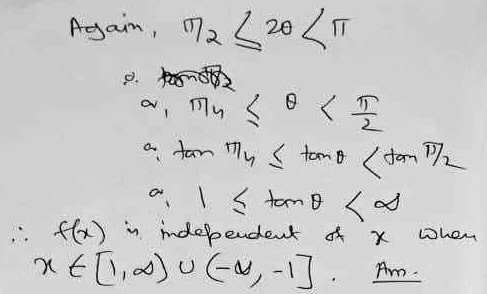 Again, π/2 ≤ 2θ < π
or, π/4 ≤ θ < π/2
or, tan π/4 ≤ tan θ < tan π/2
or, 1 ≤ tan θ < ∞
∴ f(x) is independent of x when
x ∈ [1, ∞) ∪ (-∞, -1]. Ans.